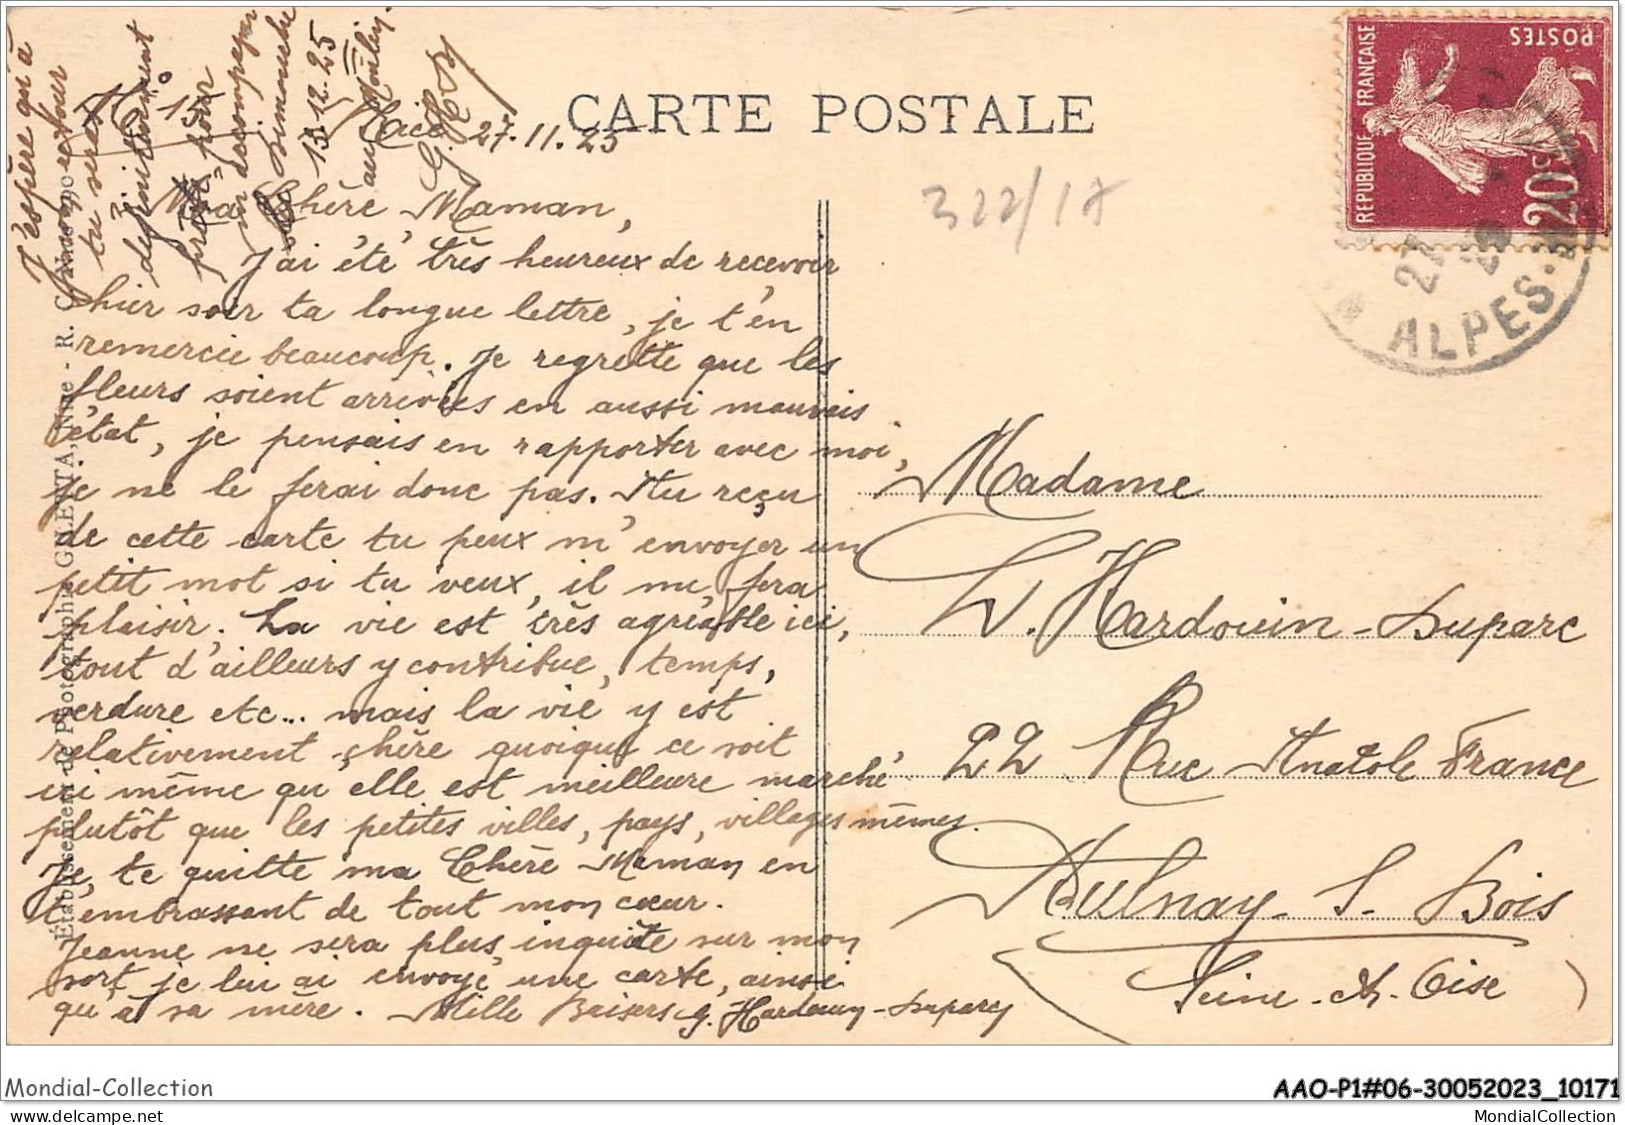 CARTE POSTALE
N° 15
Nice 27.11.25
Ma Chère Maman,
J'ai été très heureux de recevoir
hier soir ta longue lettre, je t'en
remercie beaucoup. Je regrette que les
fleurs soient arrivées en aussi mauvais
état, je pensais en rapporter avec moi,
je ne le ferai donc pas. Au reçu
de cette carte tu peux m'envoyer un
petit mot si tu veux, il me fera
plaisir. La vie est très agréable ici,
tout d'ailleurs y contribue, temps,
verdure etc... mais la vie y est
relativement chère quoique ce soit
ici même qu'elle est meilleure marché
plutôt que les petites villes, pays, villages mêmes.
Je te quitte ma Chère Maman en
t'embrassant de tout mon cœur.
Jeanne ne sera plus inquiète sur mon
sort je lui ai envoyé une carte, ainsi
qu'à sa mère. Mille Baisers G. Hardouin-Duparc
J'espère qu'à
mon retour
tu seras
définitivement
prête pour
m'accompagner
le Dimanche
13.12.25
au Moulin.
G. H.
322/18
REPUBLIQUE FRANÇAISE
POSTES
20c
27
ALPES-
Madame
W. Hardouin-Duparc
22 Rue Anatole France
Aulnay-S-Bois
(Seine-et-Oise)
Établissement de Photographie GILETTA, Nice - R. C. Nice
Mondial-Collection
AAO-P1#06-30052023_10171
delcampe.net
MondialCollection